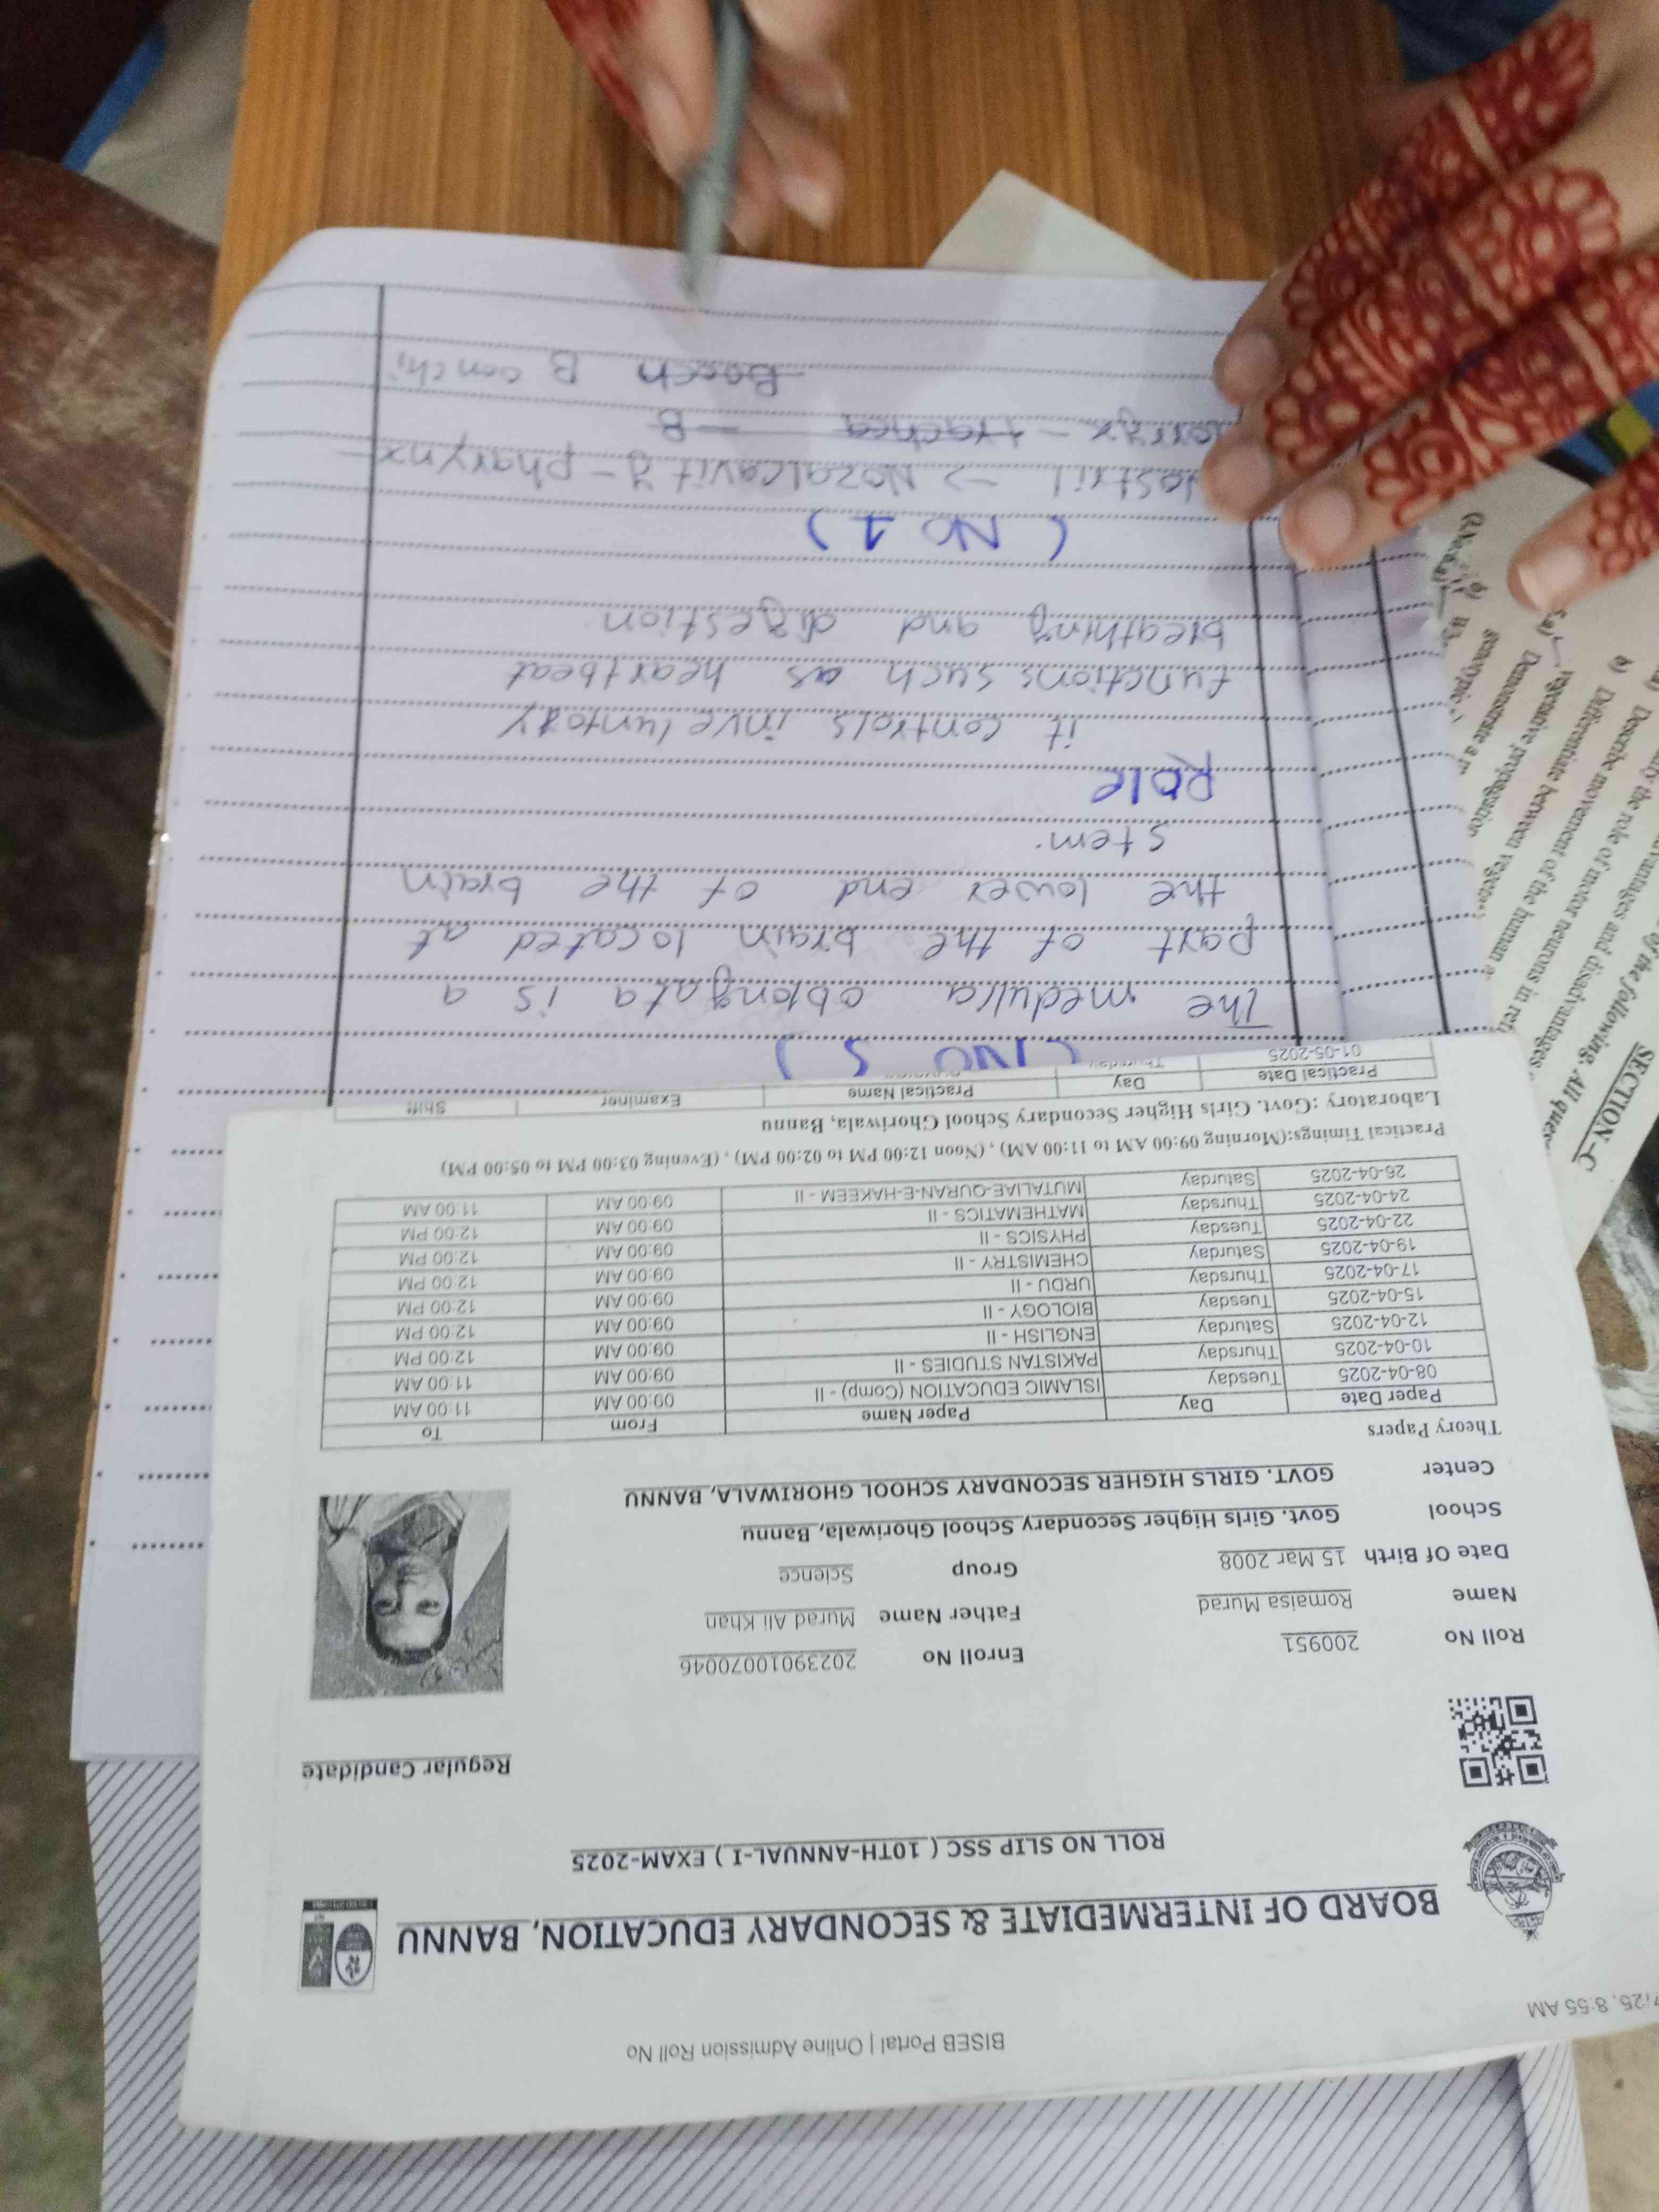 7/25, 8:55 AM
BISEB Portal | Online Admission Roll No
BOARD OF INTERMEDIATE & SECONDARY EDUCATION, BANNU
ROLL NO SLIP SSC ( 10TH-ANNUAL-I ) EXAM-2025
Regular Candidate
Roll No 200951 Enroll No 2023901007­0046
Name Romaisa Murad Father Name Murad Ali Khan
Date Of Birth 15 Mar 2008 Group Science
School Govt. Girls Higher Secondary School Ghoriwala, Bannu
Center GOVT. GIRLS HIGHER SECONDARY SCHOOL GHORIWALA, BANNU
Theory Papers
Paper Date Day Paper Name From To
08-04-2025 Tuesday ISLAMIC EDUCATION (Comp) - II 09:00 AM 11:00 AM
10-04-2025 Thursday PAKISTAN STUDIES - II 09:00 AM 11:00 AM
12-04-2025 Saturday ENGLISH - II 09:00 AM 12:00 PM
15-04-2025 Tuesday BIOLOGY - II 09:00 AM 12:00 PM
17-04-2025 Thursday URDU - II 09:00 AM 12:00 PM
19-04-2025 Saturday CHEMISTRY - II 09:00 AM 12:00 PM
22-04-2025 Tuesday PHYSICS - II 09:00 AM 12:00 PM
24-04-2025 Thursday MATHEMATICS - II 09:00 AM 12:00 PM
26-04-2025 Saturday MUTALIAE-QURAN-E-HAKEEM - II 09:00 AM 11:00 AM
Practical Timings:(Morning 09:00 AM to 11:00 AM) , (Noon 12:00 PM to 02:00 PM) , (Evening 03:00 PM to 05:00 PM)
Laboratory :Govt. Girls Higher Secondary School Ghoriwala, Bannu
Practical Date Day Practical Name Examiner Shift
01-05-2025 Thursday
(NO 5)
The medulla oblongata is a
part of the brain located at
the lower end of the brain
stem.
Role
it controls inveluntory
functions such as heartbeat
bleathing and digestion
(NO 1)
Nostril -> Nozalcavity - pharynx -
larryx - trachea - B
Boach B aonchi
SECTION-C
of the following. All ques
advantages and disadvantages
the role of motor neurons in
Describe movement of the human
b) Differentiate between
vegetative propagation
Demonstrate a
genotypic
b)